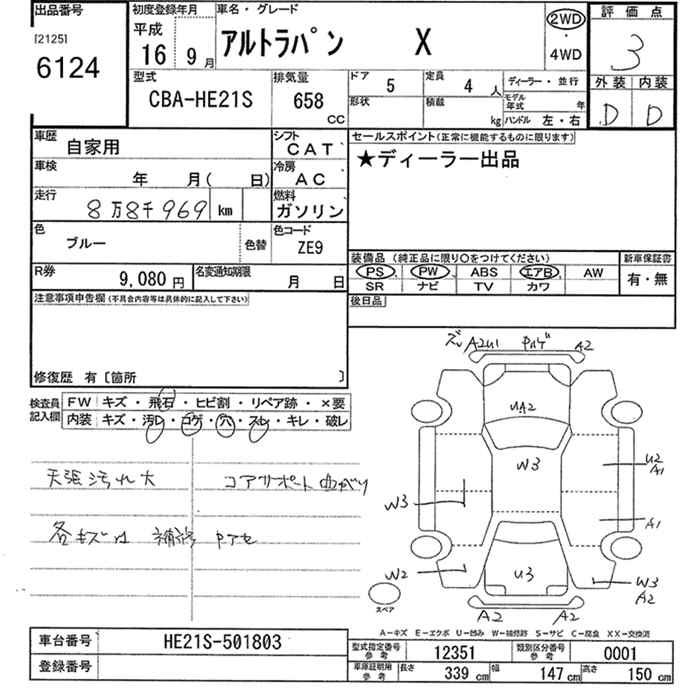 出品番号
[2125]
6124
初度登録年月
平成
16 年 9 月
車名・グレード
アルトラパン X
2WD
・
4WD
評価点
3
外装 内装
D D
型式
CBA-HE21S
排気量
658
CC
ドア
5
定員
4 人
ディーラー・並行
形状
積載
kg
モデル年式
年
ハンドル 左・右
車歴
自家用
シフト
CAT
車検
年 月( 日)
冷房
AC
走行
8万8千969 km
燃料
ガソリン
色
ブルー
色替
色コード
ZE9
R券
9,080 円
名変通知期限
月 日
セールスポイント(正常に機能するものに限ります)
★ディーラー出品
装備品(純正品に限り〇をつけてください)
新車保証書
PS PW ABS エアB AW
SR ナビ TV カワ
有・無
後日品
注意事項申告欄(不具合内容等は具体的に記入して下さい)
修復歴 有〔箇所 〕
検査員記入欄
FW キズ・飛石・ヒビ割・リペア跡・×要
内装 キズ・汚レ・コゲ・穴・スレ・キレ・破レ
天張汚れ大
コアサポート曲がり
各キズ凹 補修
A2U1
A2
UA2
W3
U2
A1
W3
A1
W2
U3
W3
A2
A2 A2
スペア
A-キズ E-エクボ U-凹み W-補修跡 S-サビ C-腐食 XX-交換済
車台番号
HE21S-501803
登録番号
型式指定番号
参考
12351
類別区分番号
参考
0001
車庫証明用
参考
長さ
339 cm
幅
147 cm
高さ
150 cm